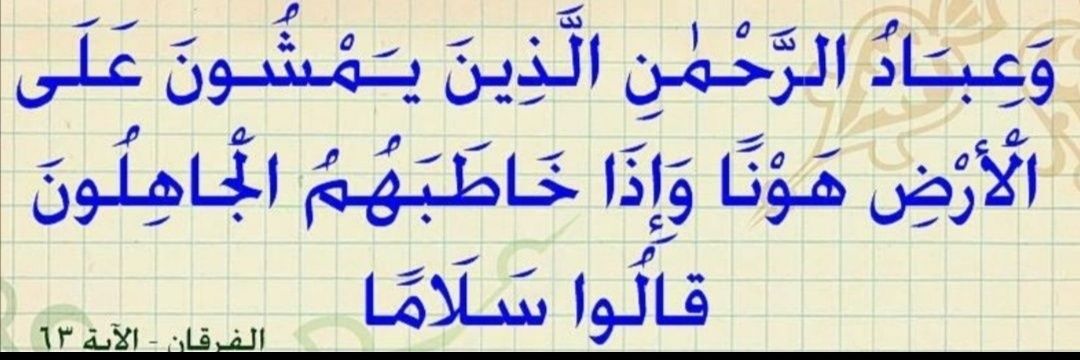 وَعِبَادُ الرَّحْمَٰنِ الَّذِينَ يَمْشُونَ عَلَى
الْأَرْضِ هَوْنًا وَإِذَا خَاطَبَهُمُ الْجَاهِلُونَ
قَالُوا سَلَامًا
الفرقان - الآية ٦٣